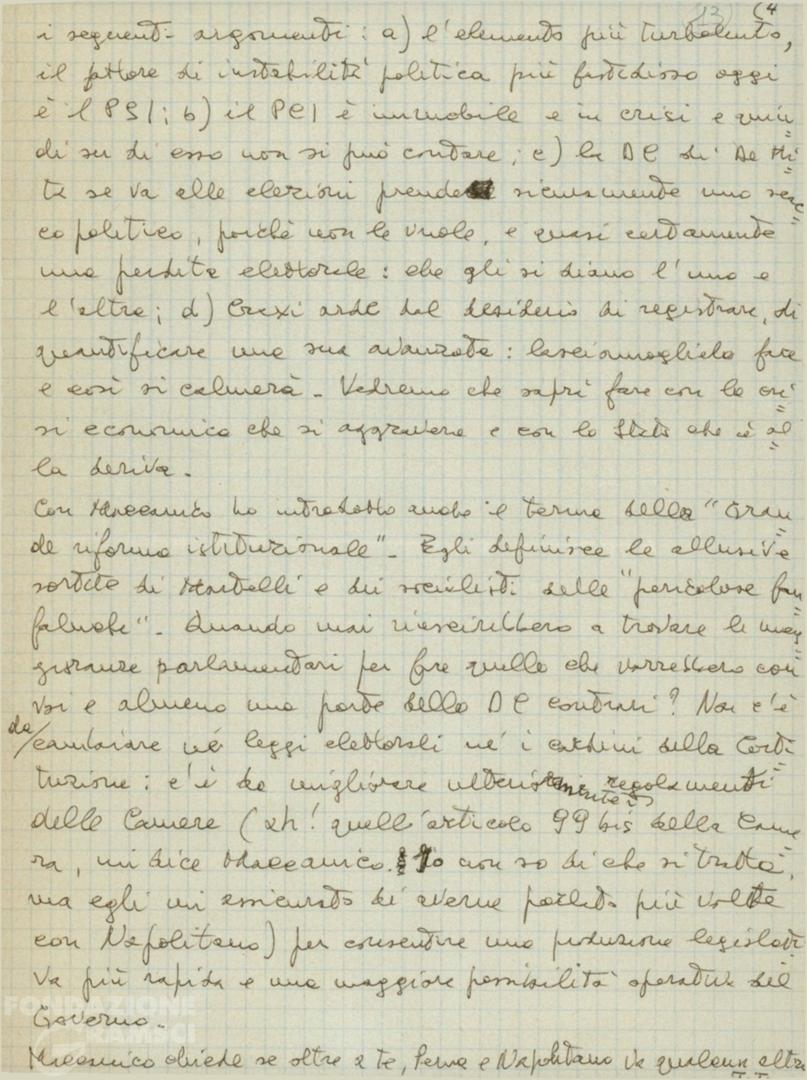 13) (4
i seguenti argomenti: a) l'elemento più turbolento,
il fattore di instabilità politica più fastidioso oggi
è il PSI; b) il PCI è immobile e in crisi e quin=
di su di esso non si può contare; c) la DC di De Mi=
ta se va alle elezioni prende sicuramente uno scac=
co politico, poichè non le vuole, e quasi certamente
una perdita elettorale: che gli si diano l'uno e
l'altra; d) Craxi arde dal desiderio di registrare, di
quantificare una sua avanzata: lasciamoglielo fare
e così si calmerà. Vedremo che saprà fare con la cri=
si economica che si aggraverà e con lo Stato che è al=
la deriva.
Con Maccanico ho introdotto anche il tema della "Gran=
de riforma istituzionale". Egli definisce le allusive
sortite di Martelli e dei socialisti delle "pericolose fan=
faluche". Quando mai riuscirebbero a trovare le mag=
gioranze parlamentari per fare quello che vorrebbero con
voi e almeno una parte della DC contrari? Non c'è
da/cambiare nè leggi elettorali nè i cardini della Costi=
tuzione: c'è da migliorare ulteriormente i regolamenti
delle Camere (ah! quell'articolo 99 bis della Came=
ra, mi dice Maccanico. Io non so di che si tratta,
ma egli mi assicurato di averne parlato più volte
con Napolitano) per consentire una produzione legislati=
va più rapida e una maggiore possibilità operativa del
Governo.
Maccanico chiede se oltre a te, Perna e Napolitano vi qualcun altro
FONDAZIONE
GRAMSCI